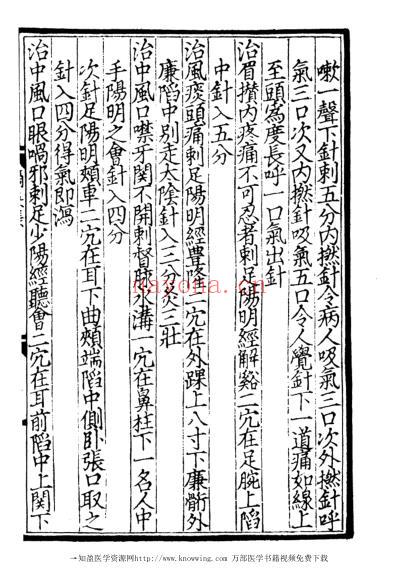 嗽一聲下針刺五分內撚針令病人吸氣三口次外撚針呼
氣三口次又內撚針吸氣五口令人覺針下一道痛如線上
至頭為度長呼一口氣出針
治眉攢內疼痛不可忍者刺足陽明經解谿二穴在足腕上陷
中針入五分
治風痰頭痛刺足陽明經豐隆二穴在外踝上八寸下廉䯒外
廉陷中別走太陰針入三分灸三壯
治中風口噤牙関不開刺督脉水溝一穴在鼻柱下一名人中
手陽明之會針入四分
次針足陽明頰車二穴在耳下曲頰端陷中側卧張口取之
針入四分得氣即瀉
治中風口眼喎邪刺足少陽經聽會二穴在耳前陷中上関下
nayona.cn
一知盈医学资源网http://www.knowing.com 万部医学书籍视频免费下载